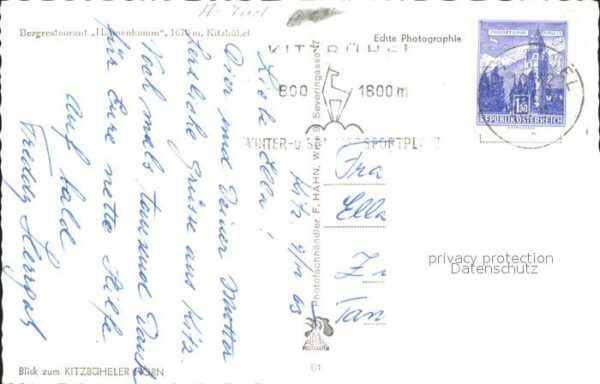 Bergrestaurant „Hahnenkamm", 1670 m, Kitzbühel
Echte Photographie
KITZBÜHEL
800 1800m
WINTER-U. SOMMERSPORTPLATZ
REPUBLIK ÖSTERREICH
Kitz. 9/10 63
Liebe Ella!
Dir und Deiner Mutter
herzliche Grüsse aus Kitz.
Noch mals tausend Dank
für Eure nette Hilfe.
Auf bald
Freddy
Photofachhändler F. HAHN, Wien 9, Severingasse
Frau
Ella
Zi
Tan
privacy protection
Datenschutz
POSTKARTEN
01
Blick zum KITZBÜHELER HORN